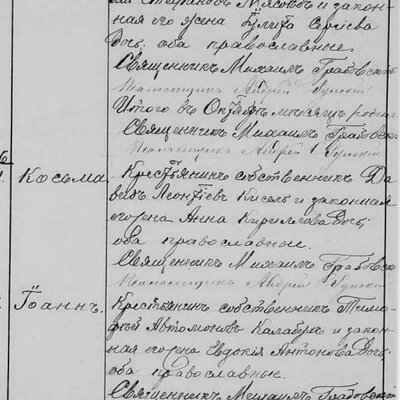 ная его жена Іулита Сергіева
Дочь, оба православные
Священникъ Михаилъ Грабовскій
Псаломщикъ Андрей
Итого въ Октябрѣ мѣсяцѣ родил
Священникъ Михаилъ Грабовск
Псаломщикъ Андрей
Косьма. Крестьянинъ собственникъ Да
видъ Леонтіевъ Кисель и законная
его жена Анна Кириллова Дочь,
оба православные.
Священникъ Михаилъ Грабовск
Псаломщикъ Андрей
Іоаннъ. Крестьянинъ собственникъ Тимо
фей Автомоновъ Калабухъ и закон
ная его жена Евдокія Антонова Дочь,
оба православные.
Священникъ Михаилъ Грабовскій